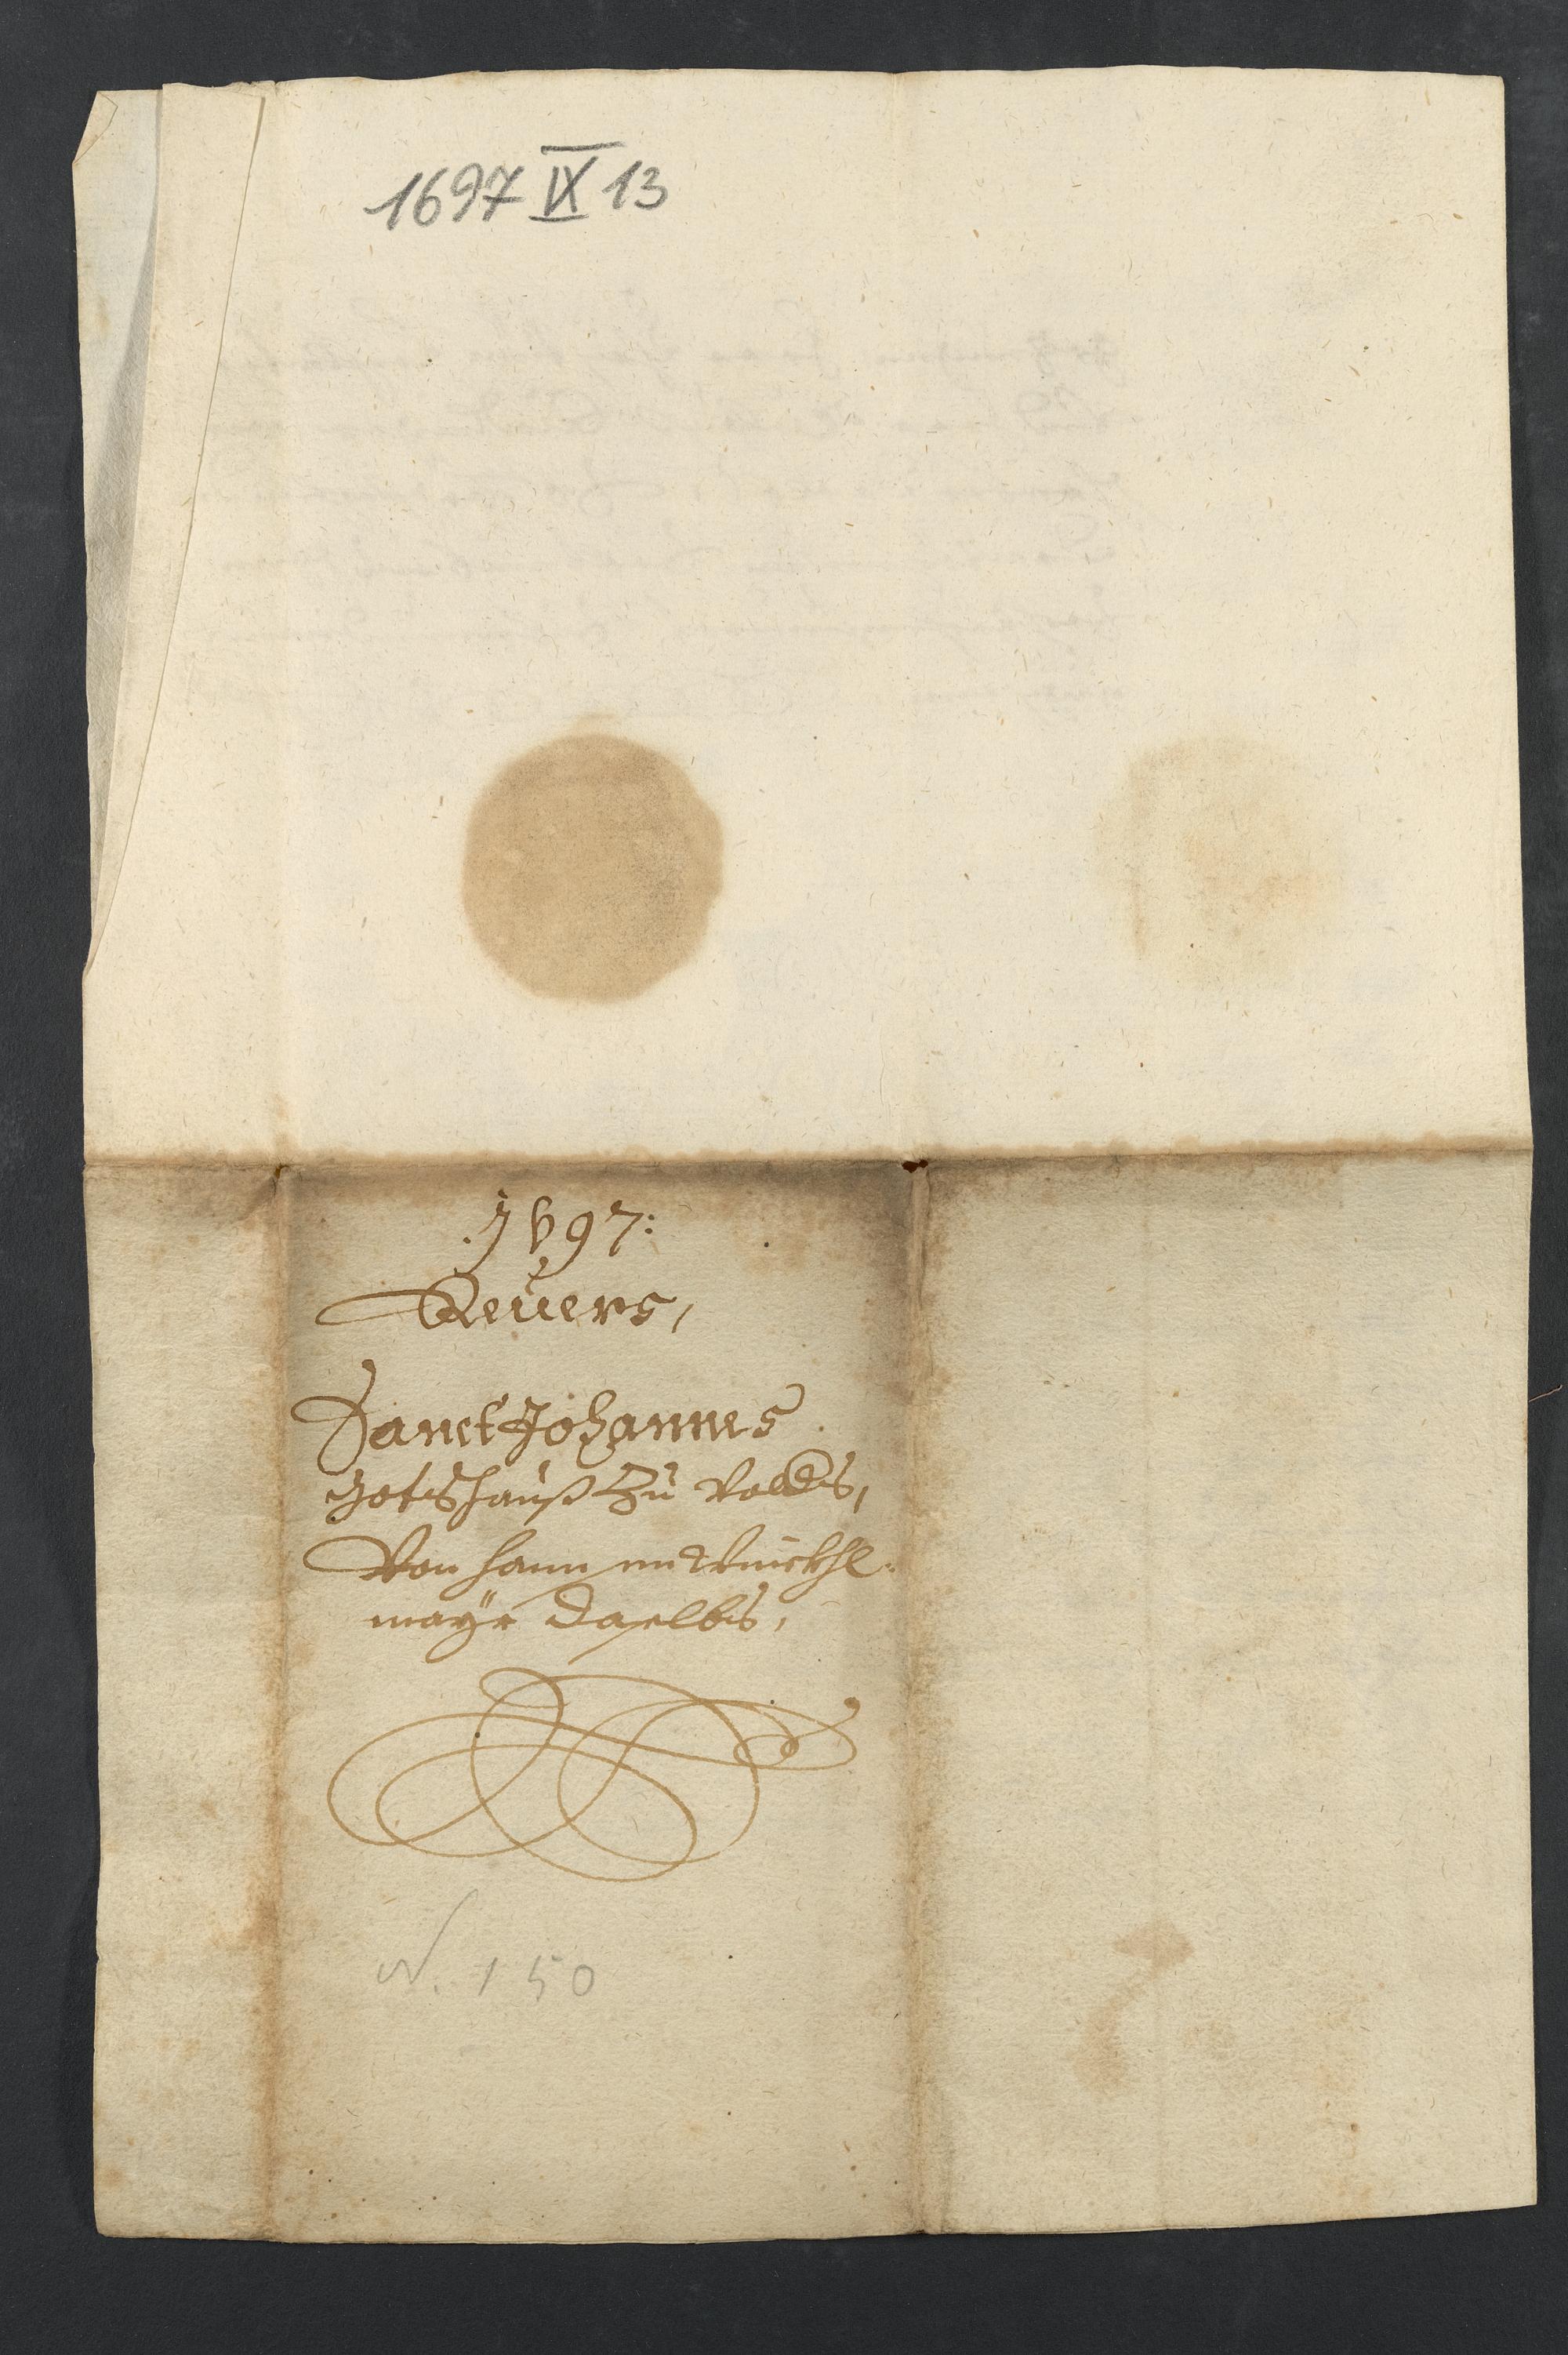 1697 IX 13
.1697:
Reuers,
Sanct Johannes
Gotshauß Zu Volders,
Von hannsen
mayr daselbs,
N. 150